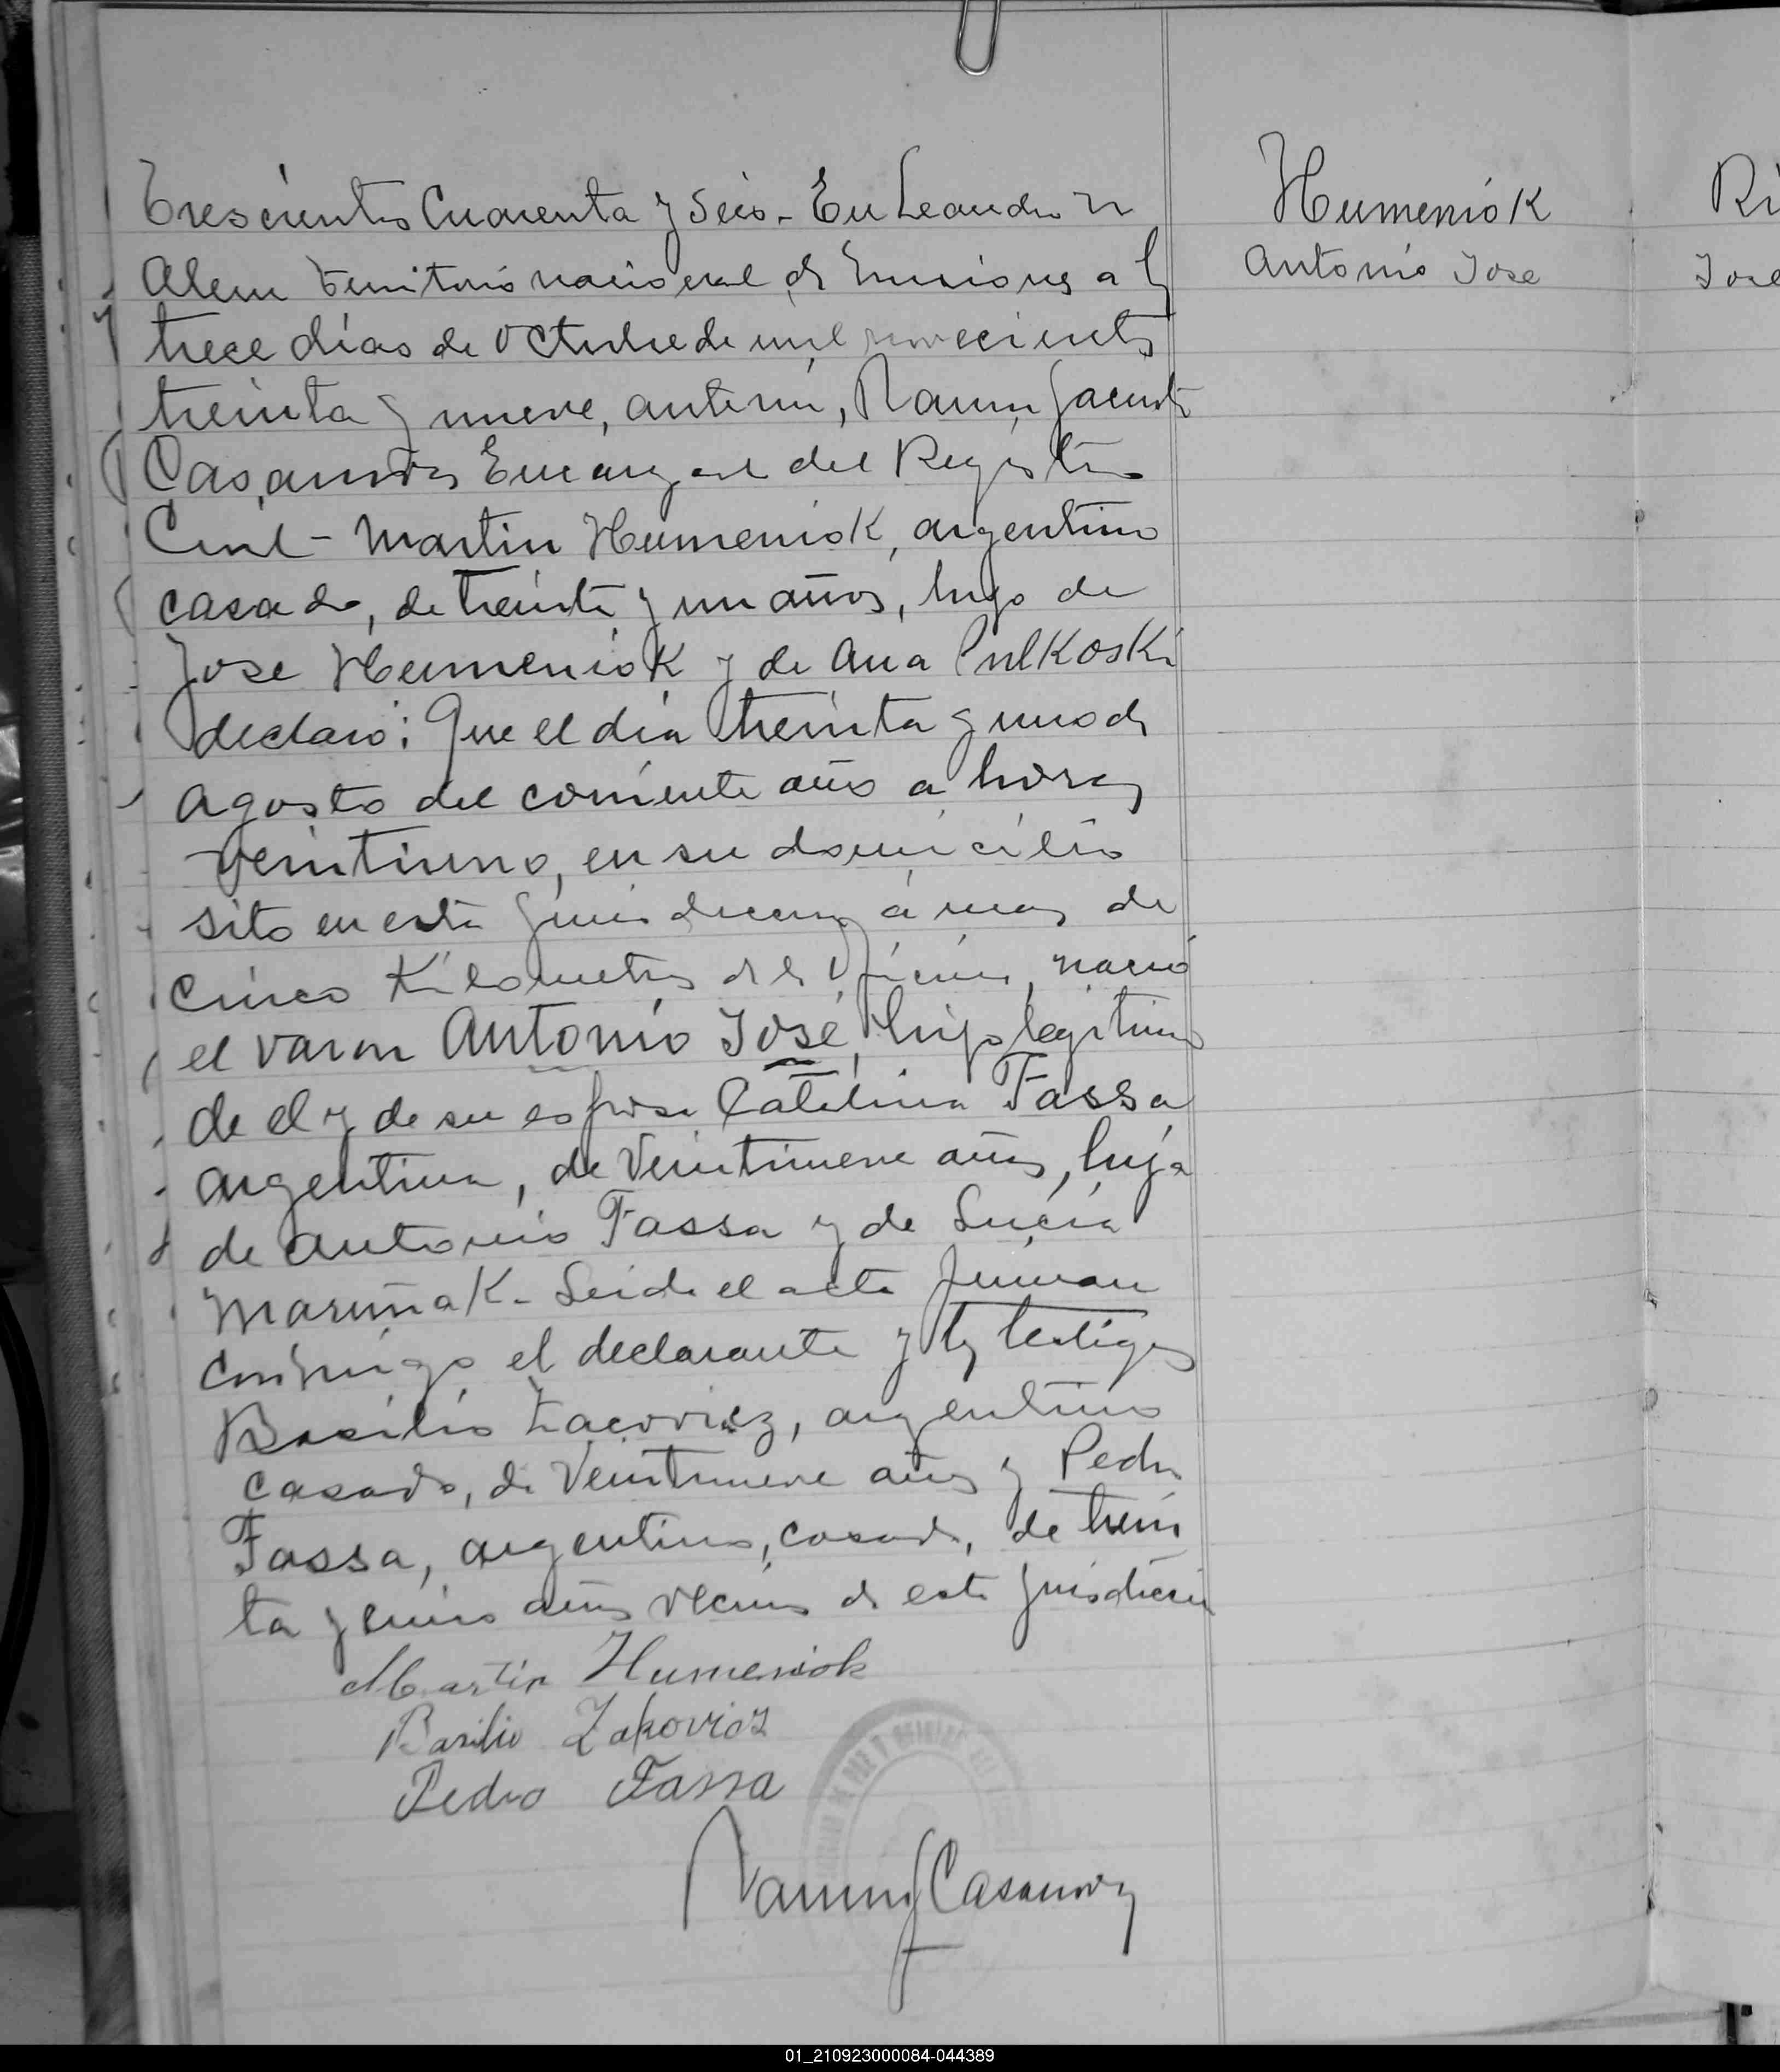 Trescientos Cuarenta y Seis - En Leandro N
Alem Territorio nacional de Misiones a los
trece días de Octubre de mil novecientos
treinta y nueve, ante mi, Ramon Jacinto
Casanova Encargado del Registro
Civil - Martin Humeniok, argentino
casado, de treinta y un años, hijo de
Jose Humeniok y de Ana Pulkoski
declaró: Que el día treinta y uno de
Agosto del corriente año a horas
veintiuno, en su domicilio
sito en esta jurisdiccion á mas de
cinco Kilometros de la Oficina, nació
el varon Antonio José, hijo legitimo
de el y de su esposa Catalina Fassa
argentina, de Veintinueve años, hija
de Antonio Fassa y de Lucía
Maruñak - Leida el acta firman
conmigo el declarante y los testigos
Basilio Zacoviez, argentino
casado, de Veintinueve años y Pedro
Fassa, argentino, casado, de trein
ta y cinco años vecinos de esta jurisdiccion
Martin Humeniok
Basilio Zakovioz
Pedro Fassa
Ramon J Casanova
Humeniok
Antonio Jose
Ri
Jose
01_210923000084-044389